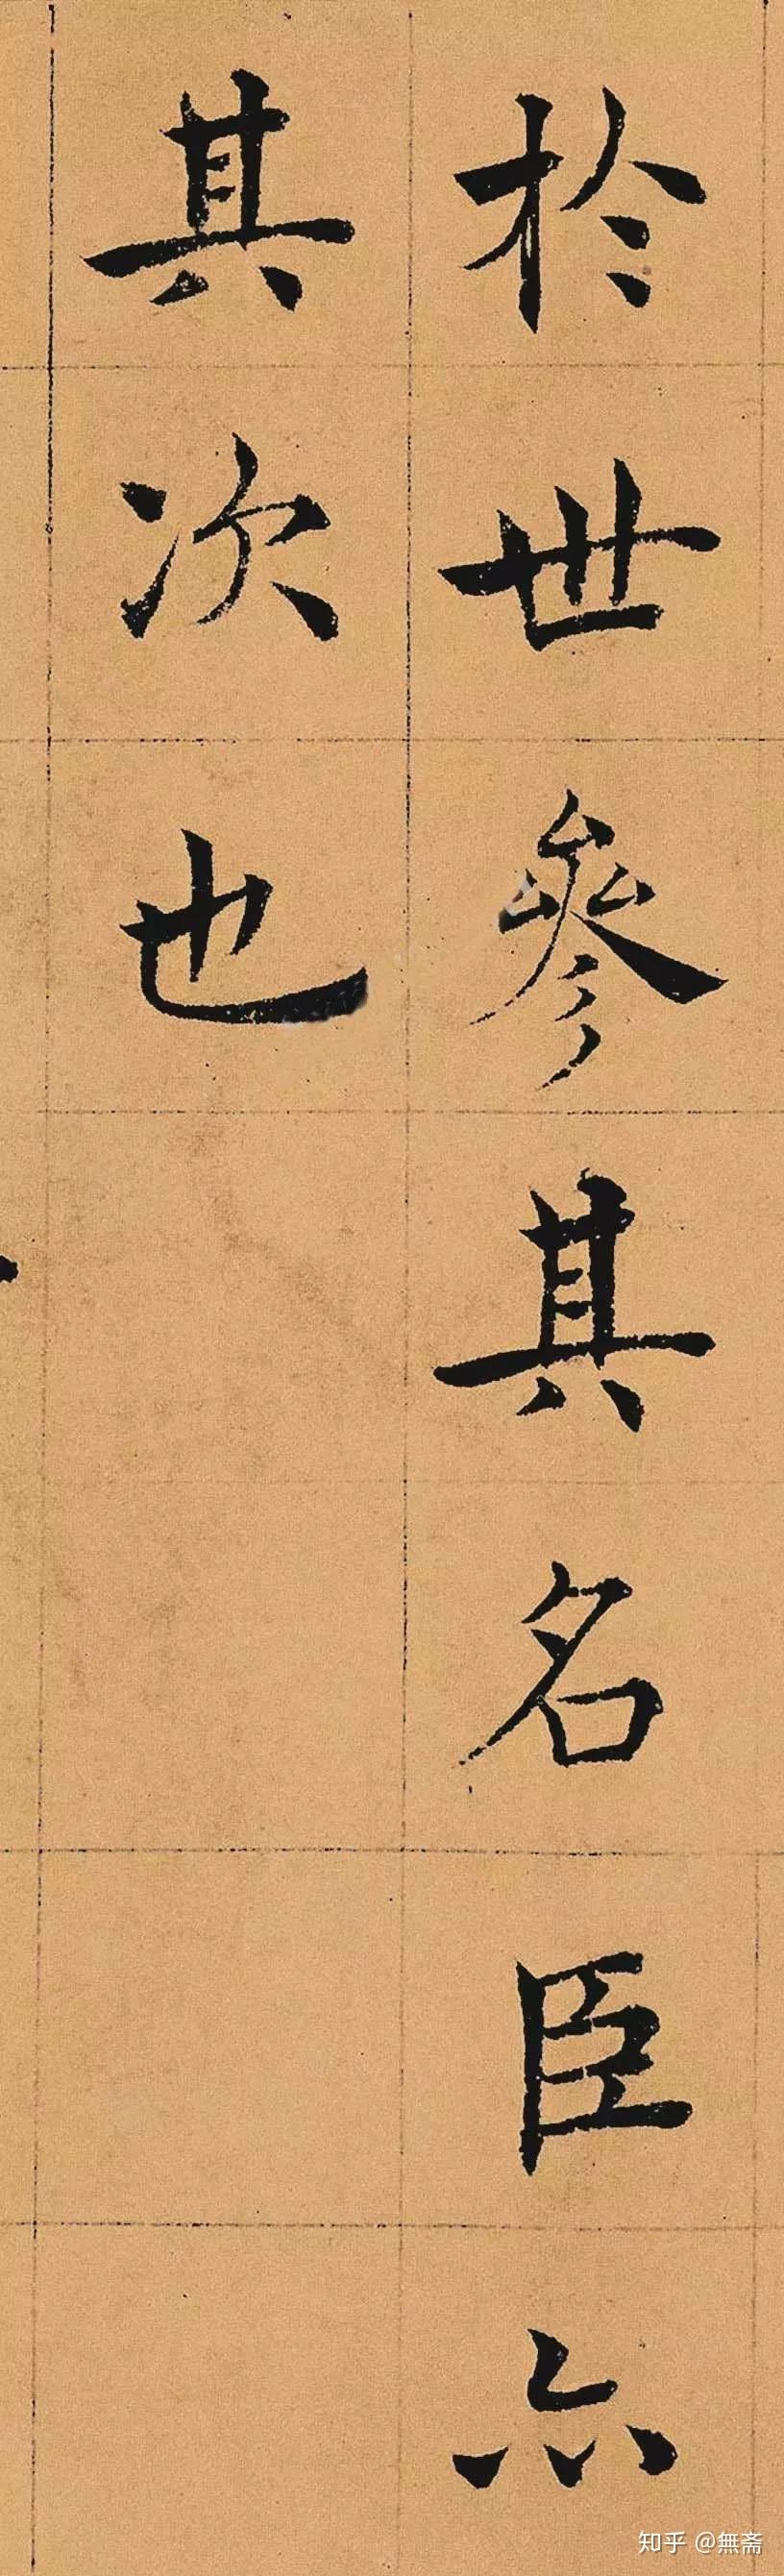 於世參其名臣亦
其次也
知乎 @無斋